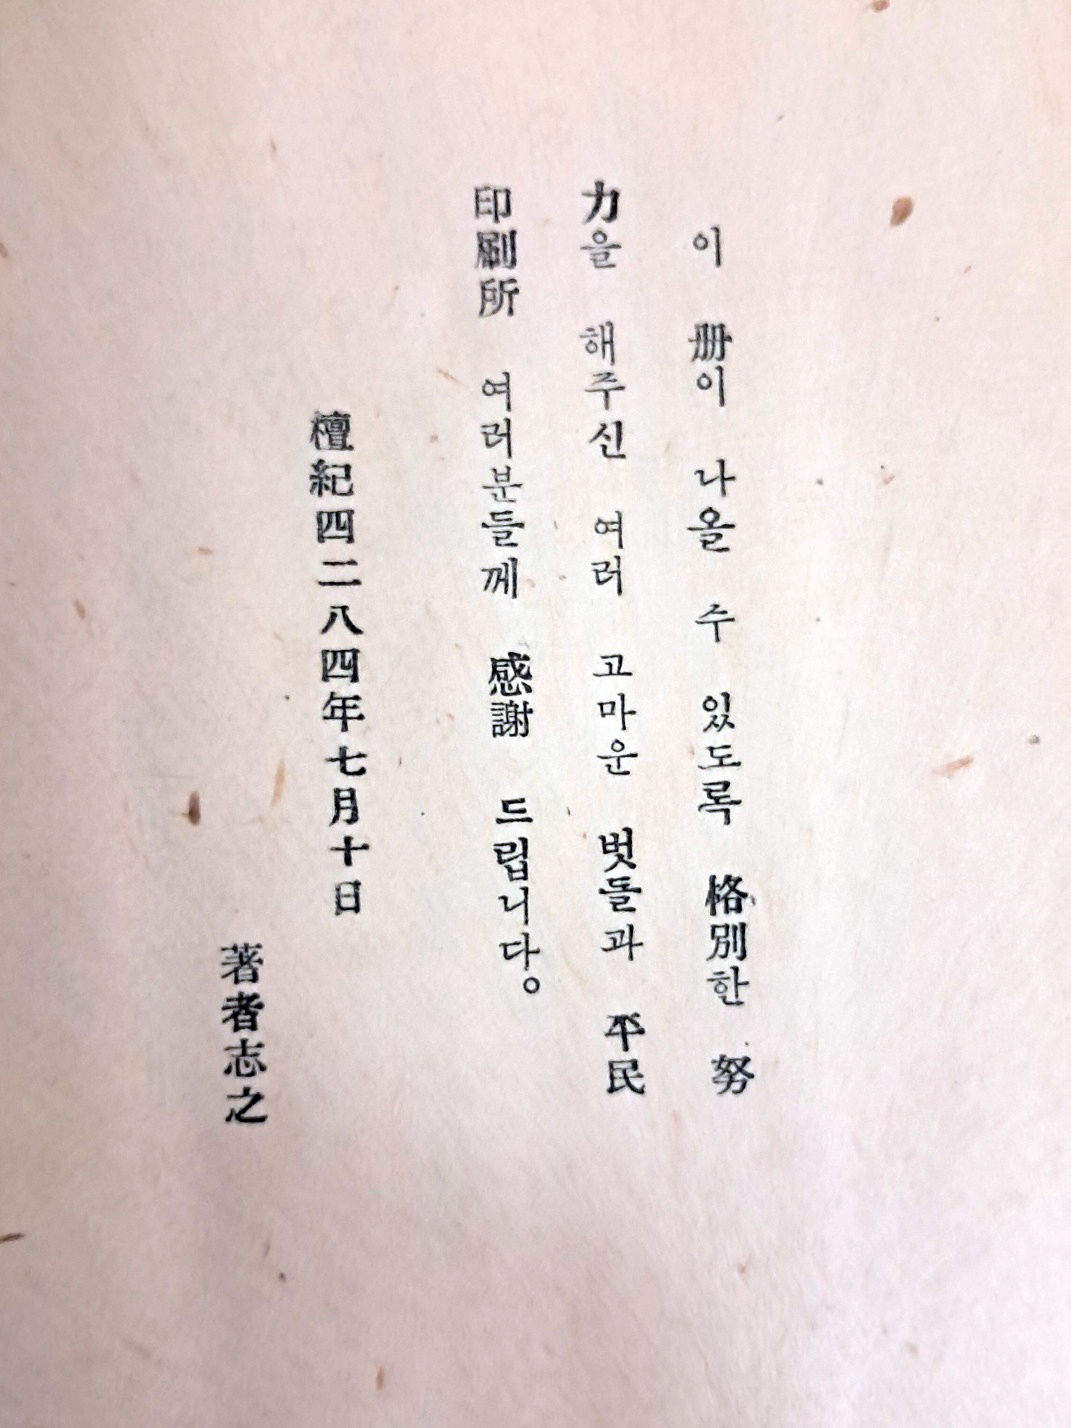 이 册이 나올 주 있도록 格別한 努
力을 해주신 여러 고마운 벗들과 平民
印刷所 여러분들께 感謝 드립니다。
檀紀四二八四年七月十日
著者志之